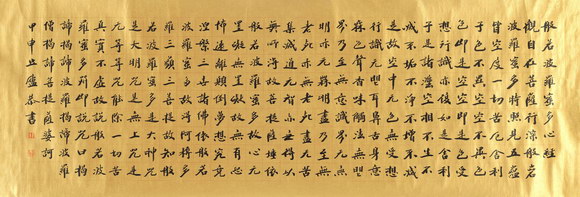 般若波羅蜜多心經
觀自在菩薩行深般若
波羅蜜多時照見五蘊
皆空度一切苦厄舍利
子色不異空空不異色
色即是空空即是色受
想行識亦復如是舍利
子是諸法空相不生不
滅不垢不淨不增不減
是故空中无色无受想
行識无眼耳鼻舌身意
无色聲香味觸法无眼
界乃至無意識界无無
明亦无無明盡乃至無
老死亦無老死盡無苦
集滅道無智亦無得以
無所得故菩提薩埵依
般若波羅蜜多故心無
罣礙無罣礙故無有恐
怖遠離顛倒夢想究竟
涅槃三世諸佛依般若
波羅蜜多故得阿耨多
羅三藐三菩提故知般
若波羅蜜多是大神咒
是大明咒是無上咒是
无等等咒能除一切苦
真實不虛故說般若波
羅蜜多咒即說咒曰揭
諦揭諦波羅揭諦波羅
僧揭諦菩提薩婆訶
甲申恭書